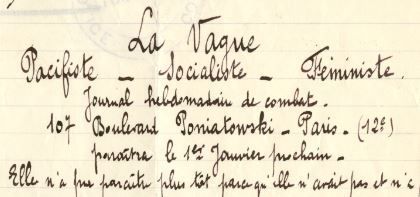 La Vague
Pacifiste – Socialiste – Féministe.
Journal hebdomadaire de combat.
107 Boulevard Poniatowski – Paris. (12e)
paraîtra le 1er Janvier prochain –
Elle n'a pu paraître plus tôt parce qu'elle n'avait pas et n'a